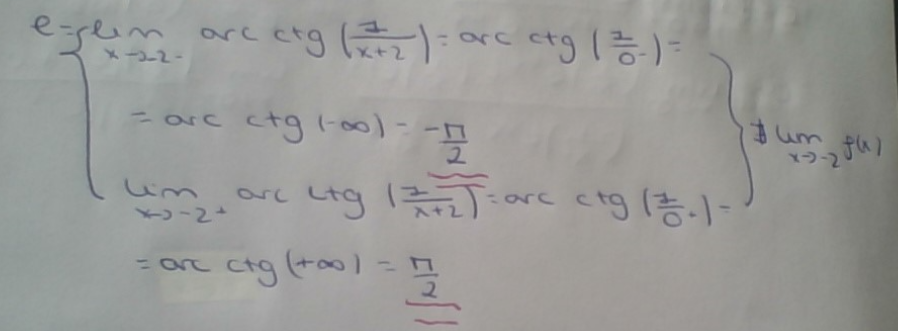 e = lim x→-2- arc ctg (1/(x+2)) = arc ctg (1/0-) =
= arc ctg (-∞) = -π/2
lim x→-2+ arc ctg (1/(x+2)) = arc ctg (1/0+) =
= arc ctg (+∞) = π/2
∄ lim x→-2 f(x)